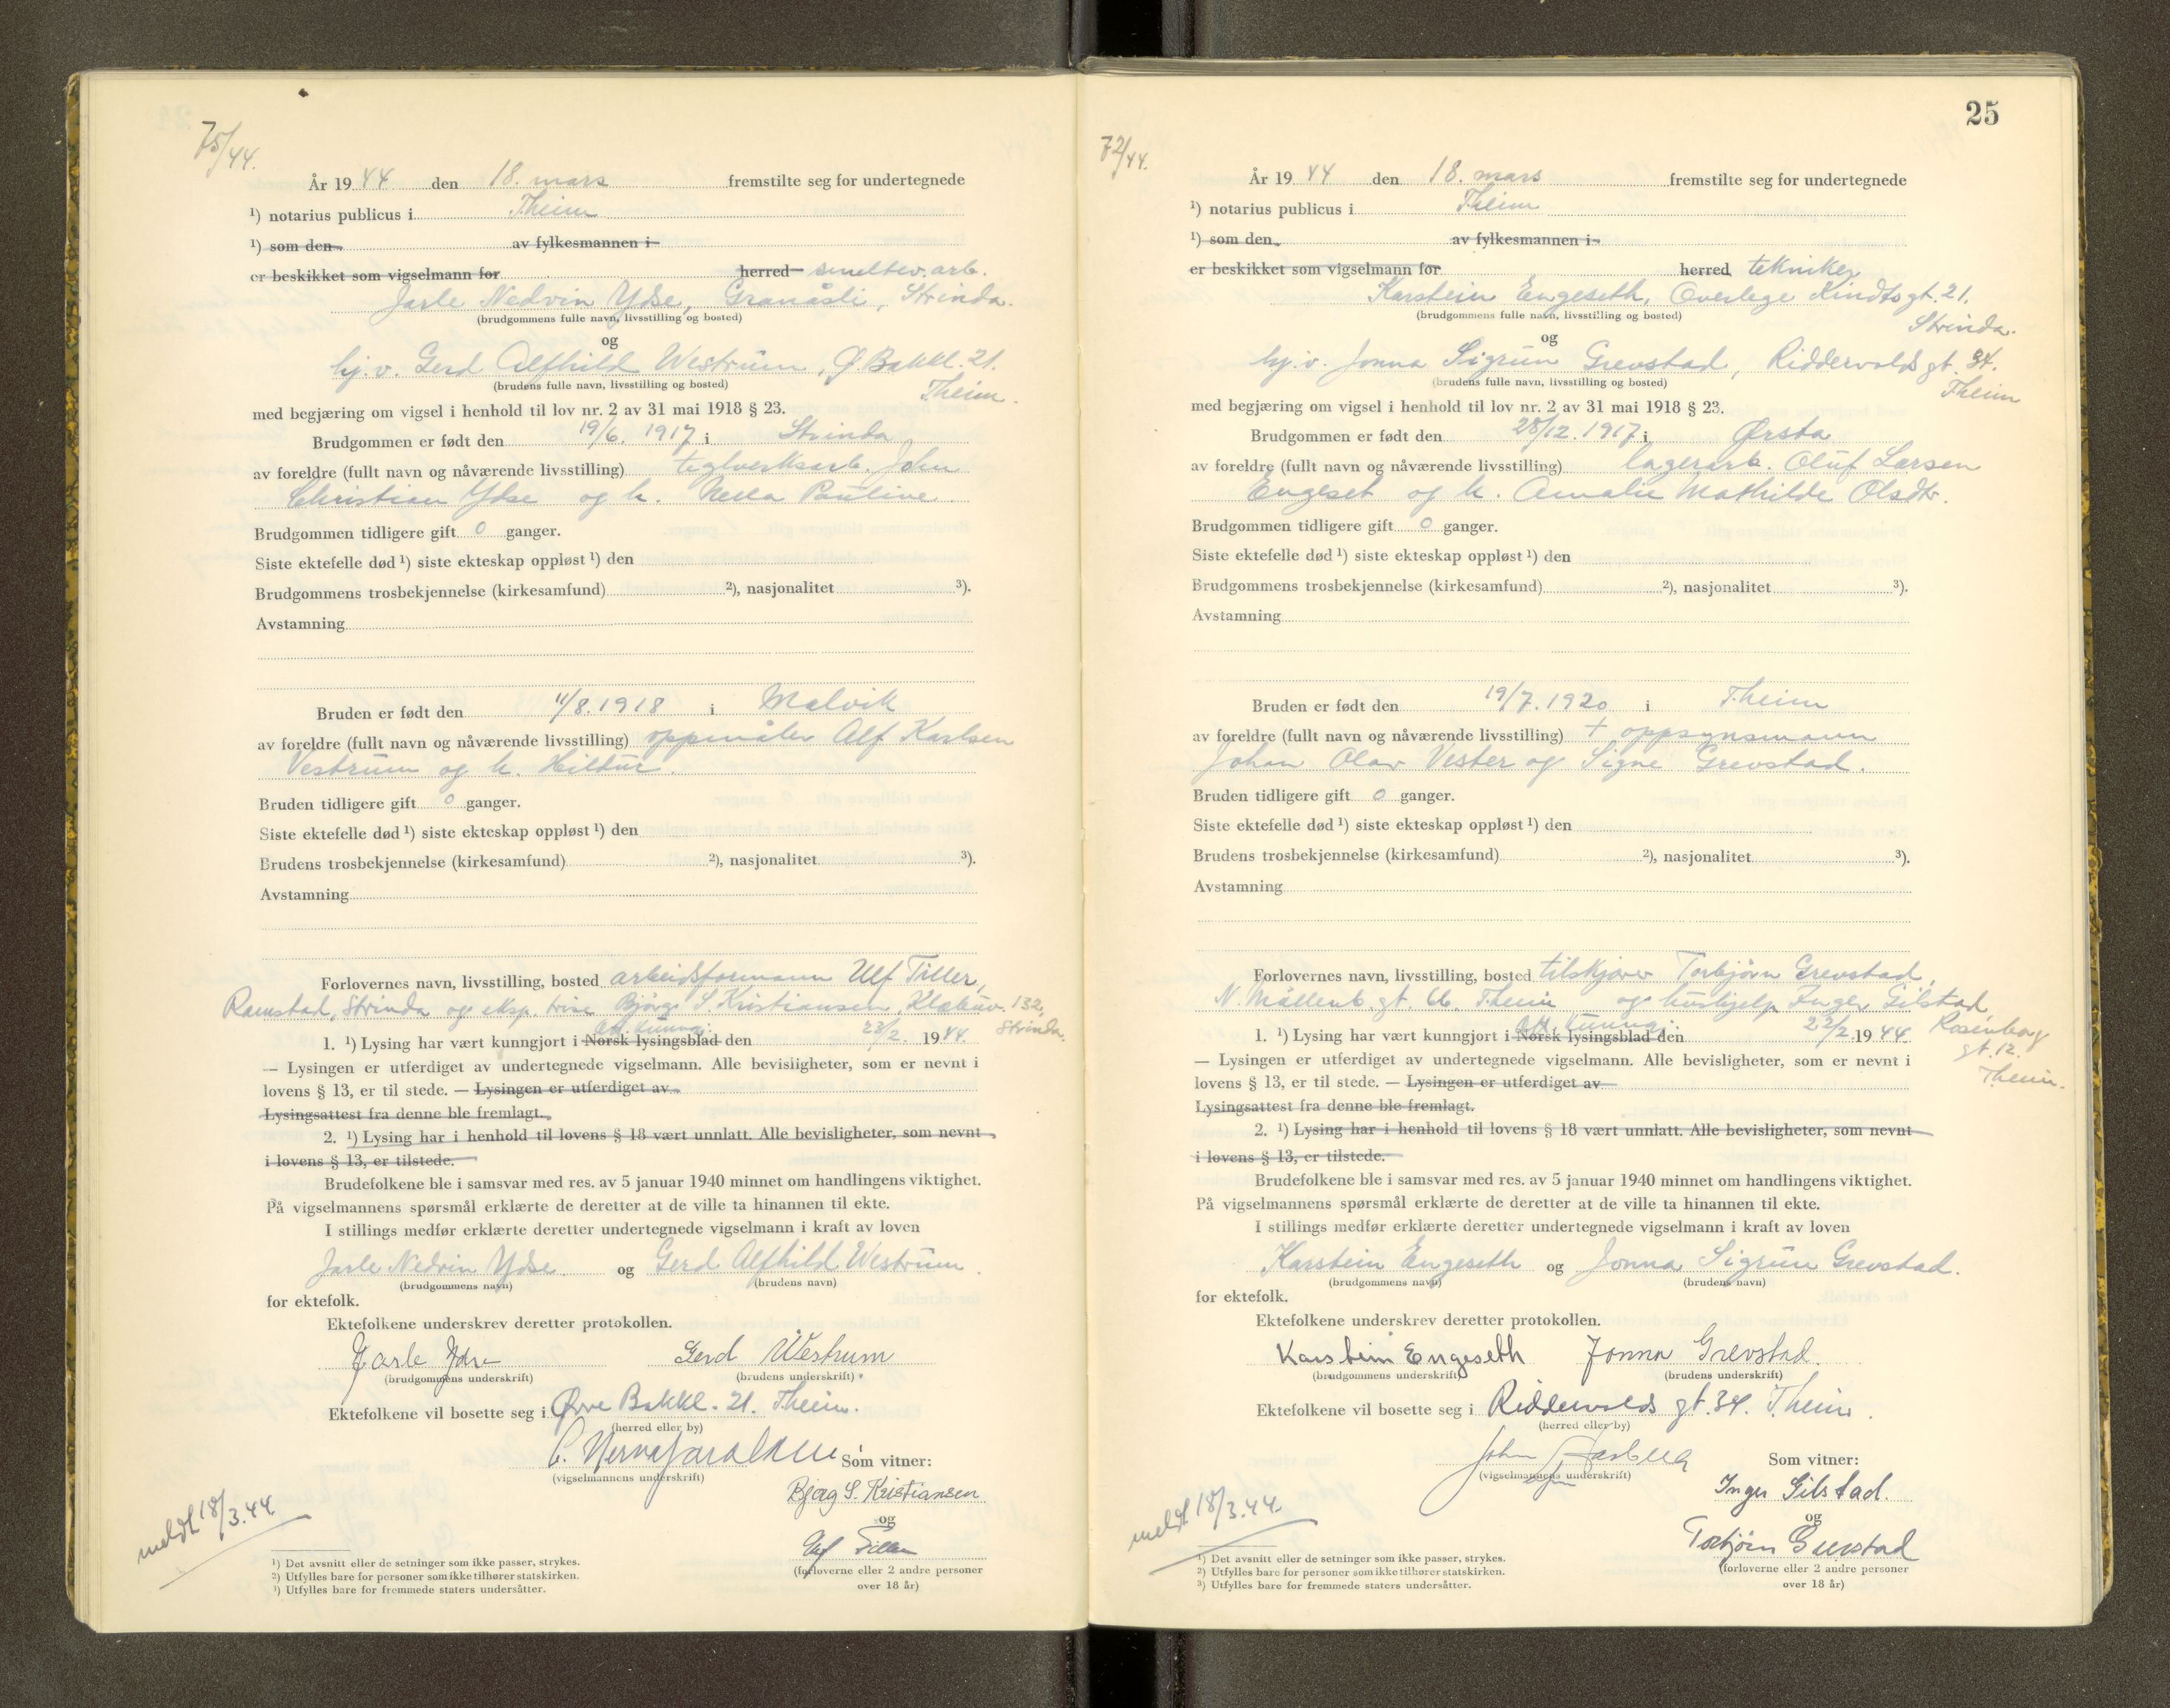 75/44.
År 19 44 den 18. mars fremstilte seg for undertegnede
¹) notarius publicus i T.heim
¹) som den av fylkesmannen i
er beskikket som vigselmann for herred smeltev. arb.
Jarle Nedvin Ydse, Granåsli, Strinda.
(brudgommens fulle navn, livsstilling og bosted)
og
hj.v. Gerd Alfhild Westrum, Ø. Bakkl. 21.
(brudens fulle navn, livsstilling og bosted)
T.heim.
med begjæring om vigsel i henhold til lov nr. 2 av 31 mai 1918 § 23.
Brudgommen er født den 19/6. 1917 i Strinda
av foreldre (fullt navn og nåværende livsstilling) teglverksarb. John
Christian Ydse og h. Pauline
Brudgommen tidligere gift 0 ganger.
Siste ektefelle død ¹) siste ekteskap oppløst ¹) den
Brudgommens trosbekjennelse (kirkesamfund) ²), nasjonalitet ³).
Avstamning
Bruden er født den 11/8. 1918 i Malvik
av foreldre (fullt navn og nåværende livsstilling) oppmåler Alf Karlsen
Vestrum og h. Hildur.
Bruden tidligere gift 0 ganger.
Siste ektefelle død ¹) siste ekteskap oppløst ¹) den
Brudens trosbekjennelse (kirkesamfund) ²), nasjonalitet ³).
Avstamning
Forlovernes navn, livsstilling, bosted arbeidsformann Ulf Tiller,
Ramstad, Strinda og eksp. trise Bjørg S. Kristiansen, Klæbuv. 132,
Strinda.
1. ¹) Lysing har vært kunngjort i Norsk lysingsblad den 23/2. 1944.
— Lysingen er utferdiget av undertegnede vigselmann. Alle bevisligheter, som er nevnt i
lovens § 13, er til stede. — Lysingen er utferdiget av
Lysingsattest fra denne ble fremlagt.
2. ¹) Lysing har i henhold til lovens § 18 vært unnlatt. Alle bevisligheter, som nevnt
i lovens § 13, er tilstede.
Brudefolkene ble i samsvar med res. av 5 januar 1940 minnet om handlingens viktighet.
På vigselmannens spørsmål erklærte de deretter at de ville ta hinannen til ekte.
I stillings medfør erklærte deretter undertegnede vigselmann i kraft av loven
Jarle Nedvin Ydse og Gerd Alfhild Westrum.
(brudgommens navn) (brudens navn)
for ektefolk.
Ektefolkene underskrev deretter protokollen.
Jarle Ydse Gerd Westrum
(brudgommens underskrift) (brudens underskrift)
Ektefolkene vil bosette seg i Øvre Bakkl. 21. T.heim.
(herred eller by)
Som vitner:
(vigselmannens underskrift)
Bjørg S. Kristiansen
og
Ulf Tiller
(forloverne eller 2 andre personer
over 18 år)
meldt 18/3.44.
¹) Det avsnitt eller de setninger som ikke passer, strykes.
²) Utfylles bare for personer som ikke tilhører statskirken.
³) Utfylles bare for fremmede staters undersåtter.
25
72/44.
År 19 44 den 18. mars fremstilte seg for undertegnede
¹) notarius publicus i T.heim
¹) som den av fylkesmannen i
er beskikket som vigselmann for herred tekniker
Karstein Engeseth, Overlege Kindts gt. 21.
(brudgommens fulle navn, livsstilling og bosted)
Strinda.
og
hj.v. Jonna Sigrun Grevstad, Riddervolds gt. 34.
(brudens fulle navn, livsstilling og bosted)
T.heim
med begjæring om vigsel i henhold til lov nr. 2 av 31 mai 1918 § 23.
Brudgommen er født den 28/12. 1917 i Ørsta
av foreldre (fullt navn og nåværende livsstilling) lagerarb. Oluf Larsen
Engeset og h. Amalie Mathilde Olsdtr.
Brudgommen tidligere gift 0 ganger.
Siste ektefelle død ¹) siste ekteskap oppløst ¹) den
Brudgommens trosbekjennelse (kirkesamfund) ²), nasjonalitet ³).
Avstamning
Bruden er født den 19/7. 1920 i T.heim
av foreldre (fullt navn og nåværende livsstilling) + oppsynsmann
Johan Olav Vester og Signe Grevstad.
Bruden tidligere gift 0 ganger.
Siste ektefelle død ¹) siste ekteskap oppløst ¹) den
Brudens trosbekjennelse (kirkesamfund) ²), nasjonalitet ³).
Avstamning
Forlovernes navn, livsstilling, bosted tilskjærer Torbjørn Grevstad,
N. Møllenb. gt. T.heim og hushjelp Inger Gilstad
Rosenborg
gt. 12.
T.heim.
1. ¹) Lysing har vært kunngjort i Norsk lysingsblad den 22/2. 1944
— Lysingen er utferdiget av undertegnede vigselmann. Alle bevisligheter, som er nevnt i
lovens § 13, er til stede. — Lysingen er utferdiget av
Lysingsattest fra denne ble fremlagt.
2. ¹) Lysing har i henhold til lovens § 18 vært unnlatt. Alle bevisligheter, som nevnt
i lovens § 13, er tilstede.
Brudefolkene ble i samsvar med res. av 5 januar 1940 minnet om handlingens viktighet.
På vigselmannens spørsmål erklærte de deretter at de ville ta hinannen til ekte.
I stillings medfør erklærte deretter undertegnede vigselmann i kraft av loven
Karstein Engeseth og Jonna Sigrun Grevstad.
(brudgommens navn) (brudens navn)
for ektefolk.
Ektefolkene underskrev deretter protokollen.
Karstein Engeseth Jonna Grevstad.
(brudgommens underskrift) (brudens underskrift)
Ektefolkene vil bosette seg i Riddervolds gt. 34. T.heim.
(herred eller by)
John Som vitner:
(vigselmannens underskrift)
Inger Gilstad.
og
Torbjørn Grevstad
(forloverne eller 2 andre personer
over 18 år)
meldt 18/3.44.
¹) Det avsnitt eller de setninger som ikke passer, strykes.
²) Utfylles bare for personer som ikke tilhører statskirken.
³) Utfylles bare for fremmede staters undersåtter.